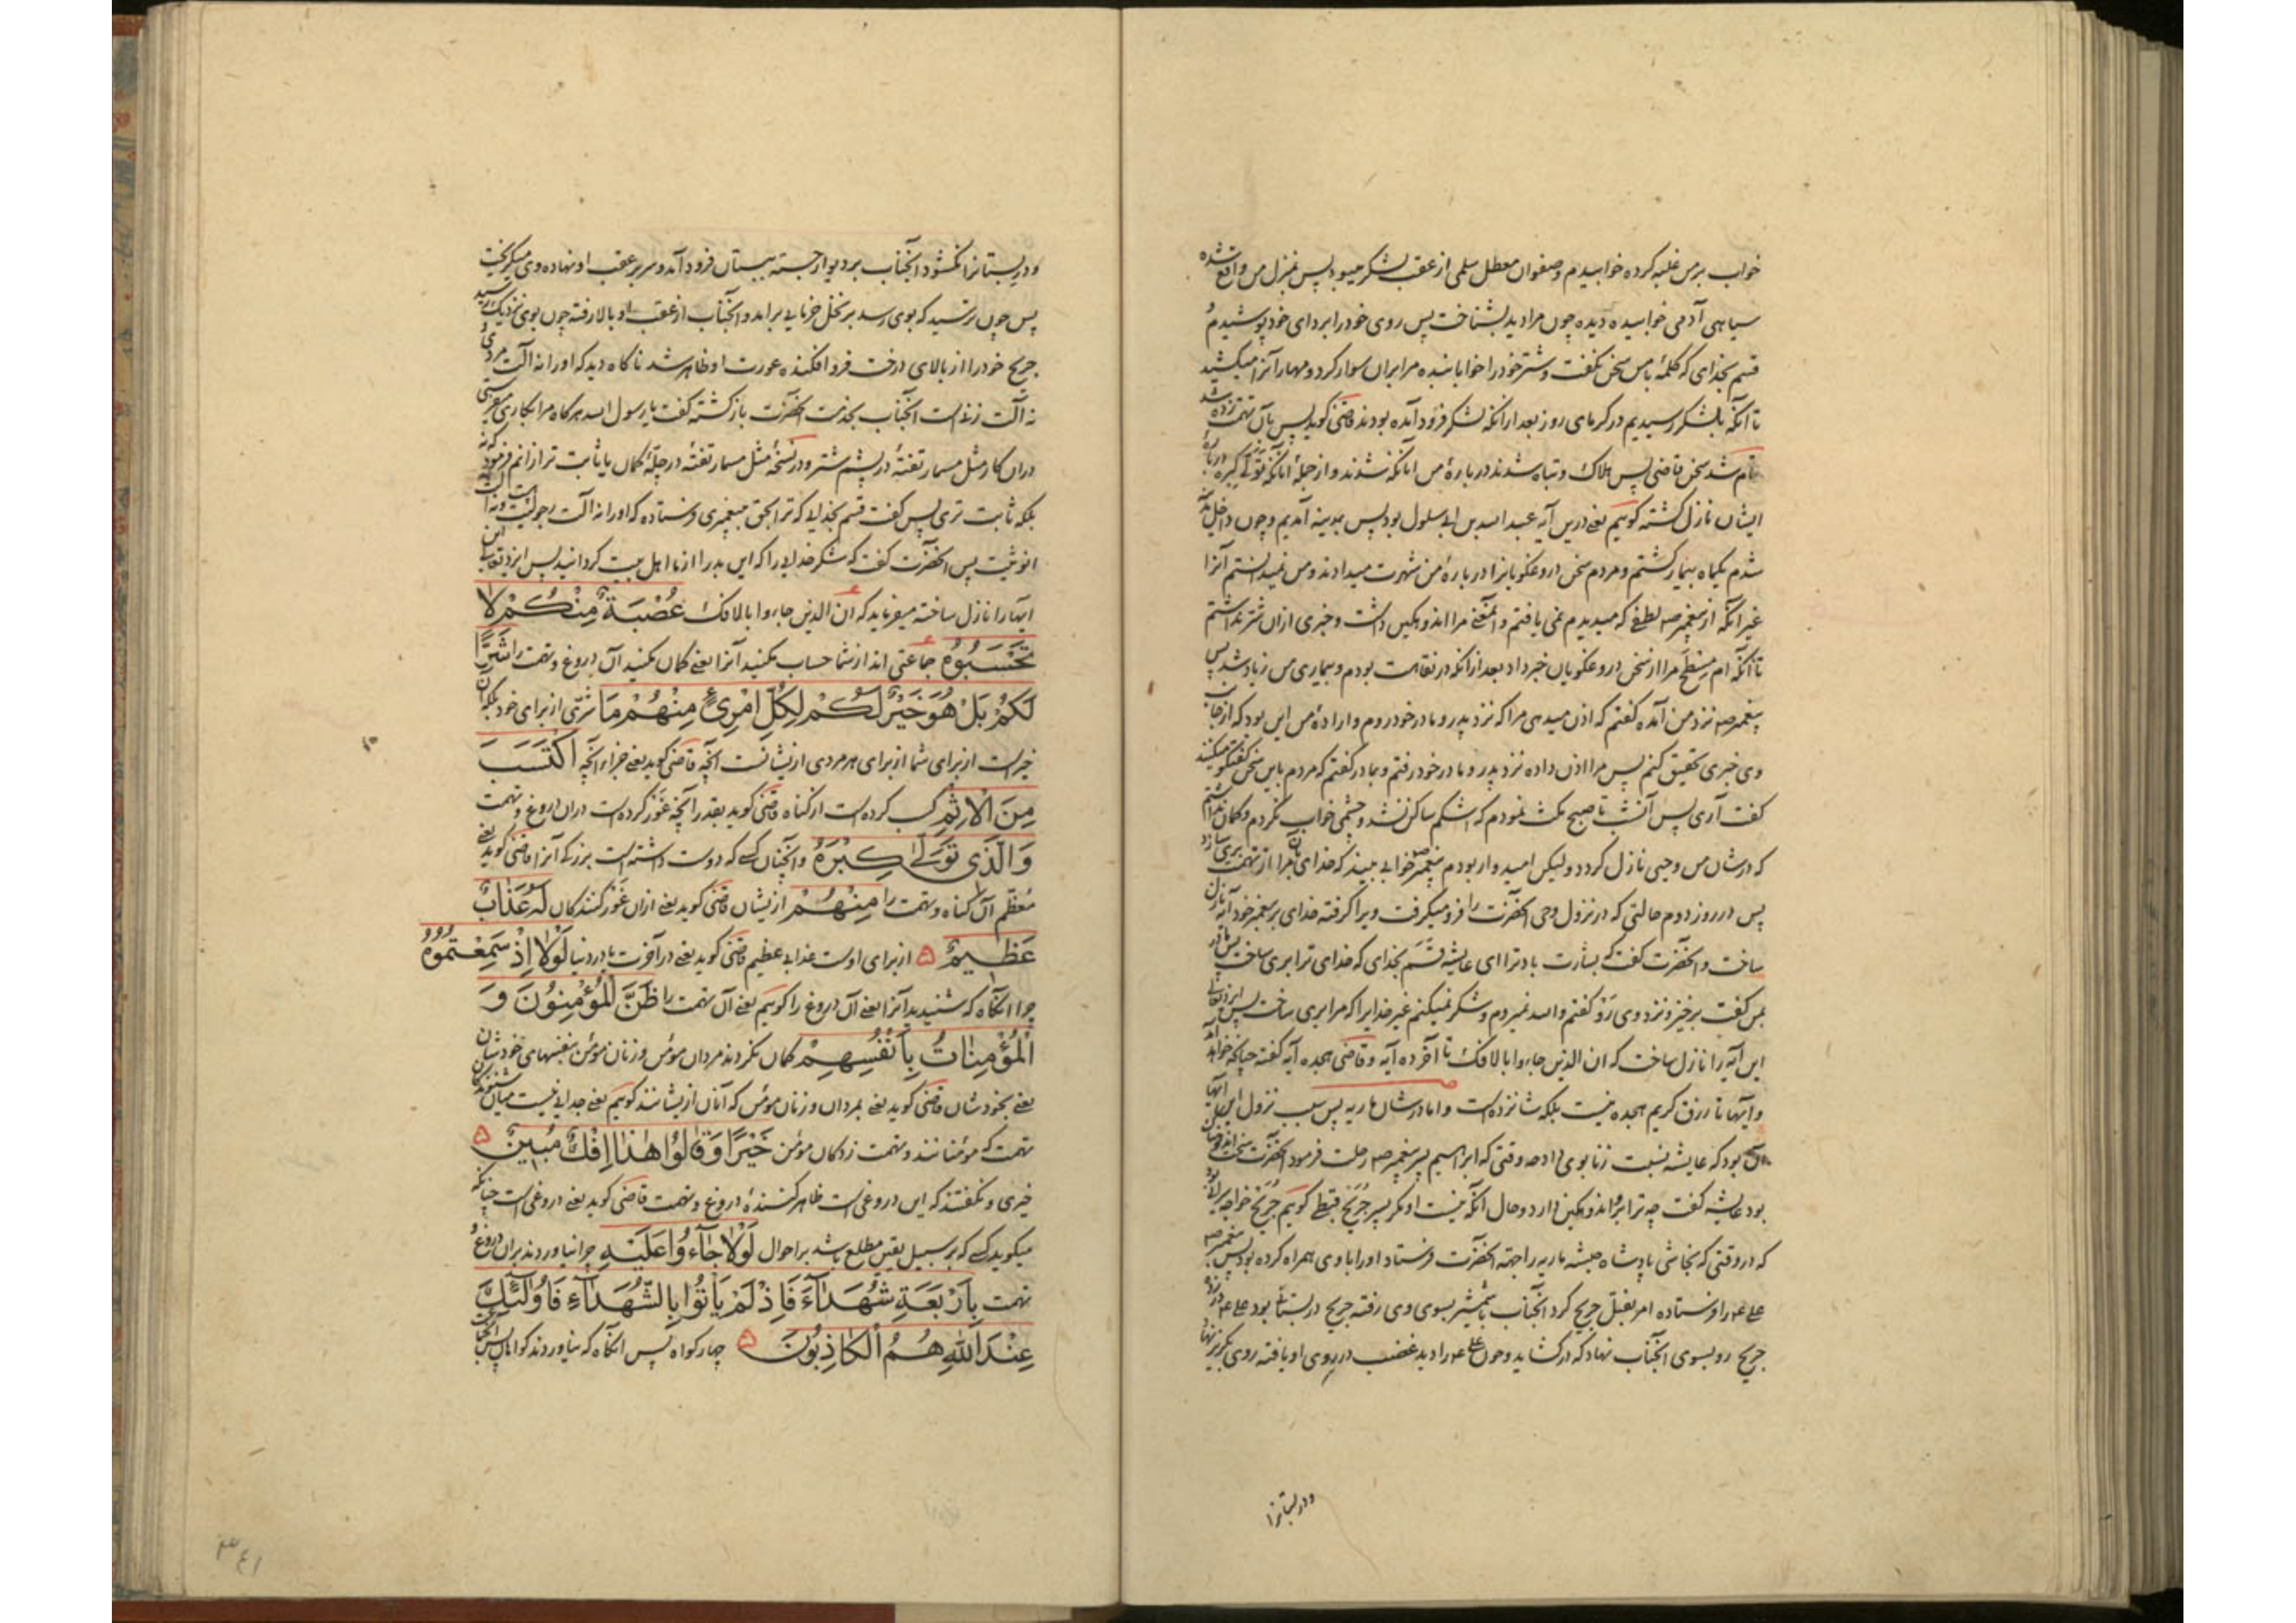 خواب بر من غلبه کرده خوابیدم و صفوان معطل سلمی از عقب لشکر میبود پس بمنزل من واقع شده
سیاهی آدمی خوابیده دیده چون مرا دید بشناخت پس روی خود را بردای خود پوشیدم
قسم بخدای که کلمهٔ با من سخن نگفت و شتر خود را خوابانیده مرا بران سوار کرد و مهار آنرا میکشید
تا آنکه بلشکر رسیدیم در گرمای روز بعد از آنکه لشکر فرود آمده بودند قاضی گوید پس بآن تهمت زده شد
تمام شد سخن قاضی پس هلاک و تباه شدند در بارهٔ من آنانکه شدند و از جملهٔ آنانکه تولی کبره در بارهٔ
ایشان نازل گشته گوییم یعنی درین آیه عبد الله بن ابی سلول بود پس بمدینه آمدیم و چون داخل
شدم یکماه بیمار گشتم و مردم سخن دروغگویانرا در بارهٔ من شهرت میدادند و من نمیدانستم آنرا
غیر آنکه از پیغمبر صه لطفی که میدیدم نمی یافتم و آنمعنی مرا اندوهگین داشت و خبری ازان شر نداشتم
تا آنکه ام مسطح مرا از سخن دروغگویان خبر داد بعد از آنکه در نقاهت بودم و بیماری من زیاد شد پس
پیغمبر صه نزد من آمده گفتم که اذن میدهی مرا که نزد پدر و مادر خود روم و ارادهٔ من این بود که از جانب
وی خبری تحقیق کنم پس مرا اذن داده نزد پدر و مادر خود رفتم و بمادر گفتم که مردم باین سخن گفتگو میکنند
گفت آری پس آنشب تا صبح مکث نمودم که اشکم ساکن نشد و چشمی خواب نکردم و گمان نداشتم
که در شان من وحیی نازل گردد ولیکن امیدوار بودم پیغمبر صه خوابی ببیند که خدای بآن مرا از تهمت بری سازد
پس در روز دوم حالتی که در نزول وحی آنحضرت را فرو میگرفت ویرا گرفته خدای بر پیغمبر خود آیه نازل
ساخت و آنحضرت گفت که بشارت باد ترا ای عایشه قسم بخدای که خدای ترا بری ساخت پس مادر
بمن گفت برخیز و نزد وی رو گفتم والله نمیروم و شکر نمیکنم غیر خدایرا که مرا بری ساخت پس ایزد تعالی
این آیه را نازل ساخت که ان الذین جاءوا بالافک تا آخر ده آیه و قاضی هجده آیه گفته چنانکه خواهد آمد
و آیها تا رزق کریم هجده نیست بلکه شانزده است و اما در شان ماریه پس سبب نزول این آیها
آن بود که عایشه نسبت زنا بوی داده وقتی که ابراهیم پسر پیغمبر صه رحلت فرمود آنحضرت سخت اندوهناک
بود عایشه گفت چه ترا بر او اندوهگین دارد و حال آنکه نیست او مگر پسر جریح قبطی گوییم جریح خواجه سرائی بود
که در وقتی که نجاشی پادشاه حبشه ماریه را جهة آنحضرت فرستاد او را با وی همراه کرده بود پس پیغمبر صه
علی ع را فرستاده امر بقتل جریح کرد آنجناب با شمشیر بسوی وی رفته جریح در بستانی بود علی ع در زده
جریح رو بسوی آنجناب نهاد که در گشاید و چون علی ع را دید غضب در روی او یافته روی بگریز نهاد
و در بستانرا
و در بستانرا نگشود آنجناب بر دیوار جسته ببستان فرود آمد و سر بر عقب او نهاده وی میگریخت
پس چون ترسید که بوی رسد بر نخل خرمایی برآمد و آنجناب از عقب او بالا رفته چون بوی نزدیک رسید
جریح خود را از بالای درخت فرو افکنده عورت او ظاهر شد ناگاه دید که او را نه آلت مردی و
نه آلت زنی است آنجناب بخدمت آنحضرت بازگشته گفت یا رسول الله هرگاه مرا بکاری میفرستی
دران کار مثل مسمار تفتهٔ در پشم شتر و در نسخهٔ مثل مسمار تفته در حلهٔ کمان یا ثابت تر ازانم فرمود که نه
بلکه ثابت تری پس گفت قسم بخدایی که ترا بحق بپیغمبری فرستاده که او را نه آلت رجولیت است و نه آلت
انوثیت پس آنحضرت گفت که شکر خدایرا که این بد را از ما اهل بیت گردانید پس ایزد تعالی این
آیها را نازل ساخته میفرماید که ان الذین جاءوا بالافک عُصْبَةٌ مِنْكُمْ لَا
تَحْسَبُوهُ جماعتی اند از شما حساب مکنید آنرا یعنی گمان مکنید آن دروغ و تهمت را شَرًّا
لَكُمْ بَلْ هُوَ خَيْرٌ لَكُمْ لِكُلِّ امْرِئٍ مِنْهُمْ مَا شرّی از برای خود بلکه آن
خیر است از برای شما از برای هر مردی از یشانست آنچه قاضی گوید یعنی جزاء آنچه اكْتَسَبَ
مِنَ الْاِثْمِ کسب کرده است از گناه قاضی گوید بقدر آنچه غور کرده است دران دروغ و تهمت
وَالَّذِي تَوَلَّى كِبْرَهُ و آنچنان کسی که دوست داشته است بزرگی آنرا قاضی گوید یعنی
معظم آن گناه و تهمت را مِنْهُمْ از یشان قاضی گوید یعنی ازان غور کنندگان لَهُ عَذَابٌ
عَظِيمٌ از برای اوست عذابی عظیم قاضی گوید یعنی در آخرت یا در دنیا لَوْلَا اِذْ سَمِعْتُمُوهُ
چرا آنگاه که شنیدید آنرا یعنی آن دروغ را گوییم یعنی آن تهمت را ظَنَّ الْمُؤْمِنُونَ وَ
الْمُؤْمِنَاتُ بِاَنْفُسِهِمْ گمان نکردند مردان مؤمن و زنان مؤمن بنفسهای خودشان
یعنی بخودشان قاضی گوید یعنی بمردان و زنان مؤمن که آنان از یشانند گوییم یعنی جدایی نیست میان شنوندگان
تهمت که مؤمنانند و تهمت زدگان مؤمن خَيْرًا وَقَالُوا هَذَا اِفْكٌ مُبِينٌ
خیری و نگفتند که این دروغی است ظاهر کنندهٔ دروغ و تهمت قاضی گوید یعنی دروغی است چنانکه
میگوید کسی که بر سبیل یقین مطلع باشد بر احوال لَوْلَا جَآءُوا عَلَيْهِ چرا نیاوردند بران دروغ و
تهمت بِاَرْبَعَةِ شُهَدَآءَ فَاِذْ لَمْ يَأْتُوا بِالشُّهَدَآءِ فَاُولَئِكَ
عِنْدَ اللّٰهِ هُمُ الْكَاذِبُونَ چهار گواه پس آنگاه که نیاوردند گواهان پس آنجماعت
۳۴۱